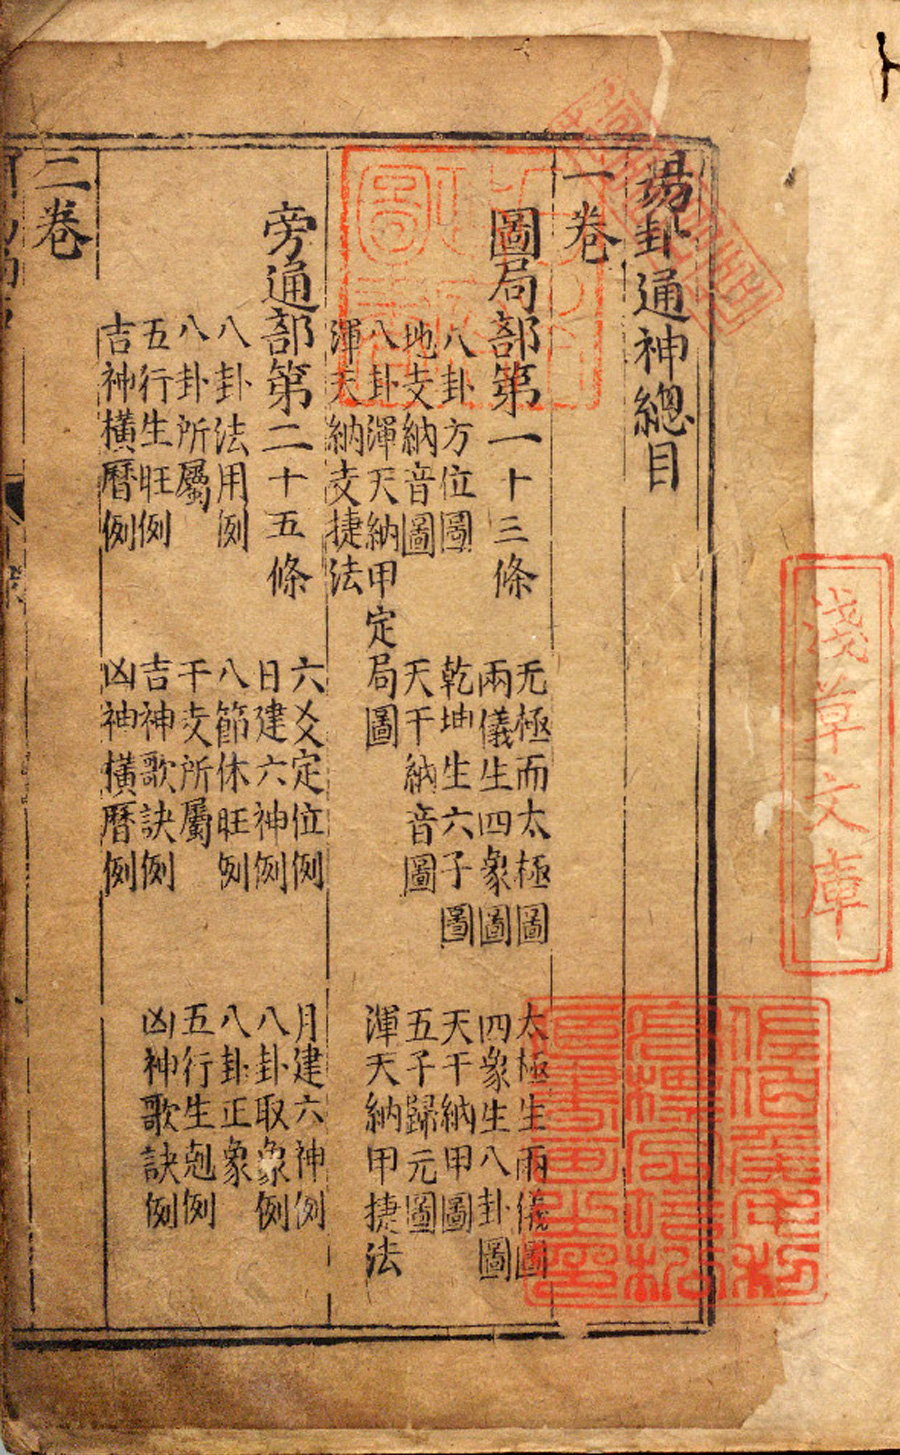 易卦通神總目
一卷
圖局部第一十三條
无極而太極圖 太極生兩儀圖
兩儀生四象圖 四象生八卦圖
八卦方位圖 乾坤生六子圖 天干納甲圖
地支納音圖 天干納音圖 五子歸元圖
八卦渾天納甲定局圖 渾天納甲捷法
渾天納支捷法
旁通部第二十五條
六爻定位例 月建六神例
日建六神例 八卦取象例
八卦法用例 八節休旺例 八卦正象
八卦所屬 干支所屬 五行生剋例
五行生旺例 吉神歌訣例 凶神歌訣例
吉神橫曆例 凶神橫曆例
二卷
淺草文庫
佐伯矦毛利
高標字培松
藏書畫之印